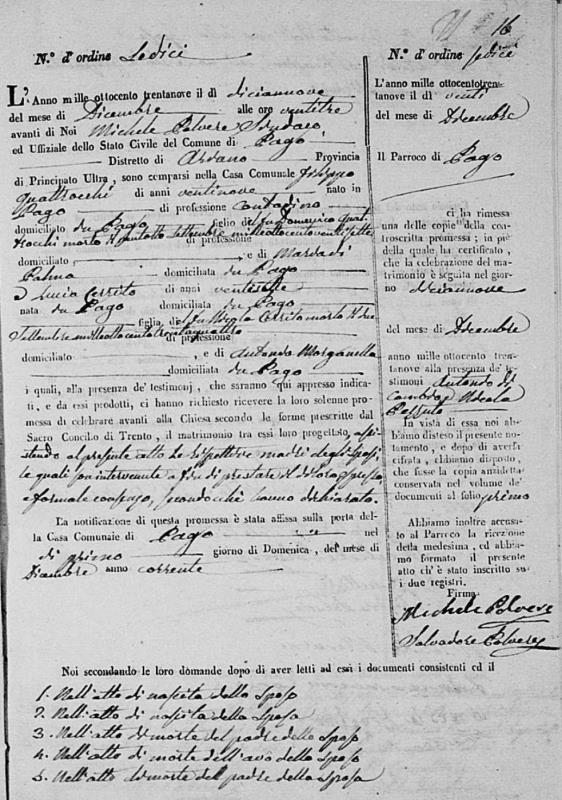 16
N.º d'ordine Sedici
L'Anno mille ottocento trentanove il dì diciannove
del mese di Dicembre alle ore ventitre
avanti di Noi Michele Polvere Sindaco
ed Uffiziale dello Stato Civile del Comune di Pago
Distretto di Ariano Provincia
di Principato Ultra, sono comparsi nella Casa Comunale Filippo
Quattrocchi di anni ventinove nato in
Pago di professione Contadino
domiciliato in Pago figlio del fu Domenico Quat
trocchi morto li Settembre milleottocentoventisette
di professione
domiciliato, e di
Palma domiciliata in Pago
e Lucia Cerrito di anni ventisette
nata in Pago domiciliata in Pago
figlia di fu Nicola Cerrito morto li due
Settembre milleottocentotrentaquattro
di professione
domiciliato e di Antonia Morganella
domiciliata in Pago
i quali, alla presenza de' testimonj, che saranno qui appresso indica-
ti, e da essi prodotti, ci hanno richiesto ricevere la loro solenne pro-
messa di celebrare avanti alla Chiesa secondo le forme prescritte dal
Sacro Concilio di Trento, il matrimonio tra essi loro progettato, assi
stendo al presente atto le rispettive madri degli sposi
le quali son intervenute a fin di prestare il di loro espresso
e formale consenso, secondochè hanno dichiarato.
La notificazione di questa promessa è stata affissa sulla porta del-
la Casa Comunale di Pago nel
dì primo giorno di Domenica, del mese di
Dicembre anno corrente
N.º d'ordine sedici
L'anno mille ottocentotren-
tanove il dì venti
del mese di Dicembre
Il Parroco di Pago
ci ha rimessa
una delle copie della con-
troscritta promessa; in piè
della quale, ha certificato,
che la celebrazione del ma-
trimonio è seguita nel gior-
no diciannove
del mese di Dicembre
anno mille ottocento tren-
tanove alla presenza de' te-
stimoni Antonio di
e Nicola
In vista di essa noi ab-
biamo disteso il presente no-
tamento, e dopo di averla
cifrata, abbiamo disposto,
che fusse la copia anzidetta
conservata nel volume de'
documenti al folio primo
Abbiamo inoltre accusa-
to al Parroco la ricezione
della medesima, ed abbia-
mo formato il presente
atto ch'è stato inscritto su
i due registri.
Firma
Michele Polvere
Salvadore Polvere
Noi secondando le loro domande dopo di aver letti ad essi i documenti consistenti ed il
1. Nell'atto di nascita dello sposo
2. Nell'atto di nascita della sposa
3. Nell'atto di morte del padre dello sposo
4. Nell'atto di morte dell'avo dello sposo
5. Nell'atto di morte del padre della sposa